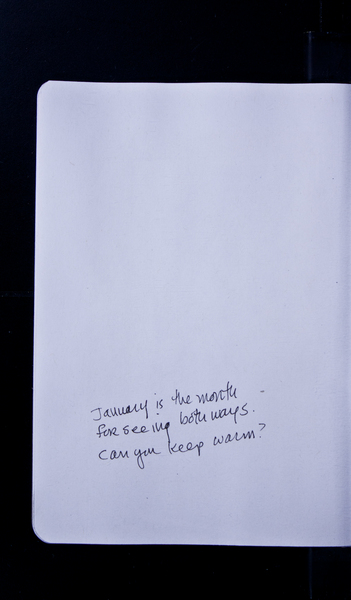 January is the month -
for seeing both ways.
can you keep warm?